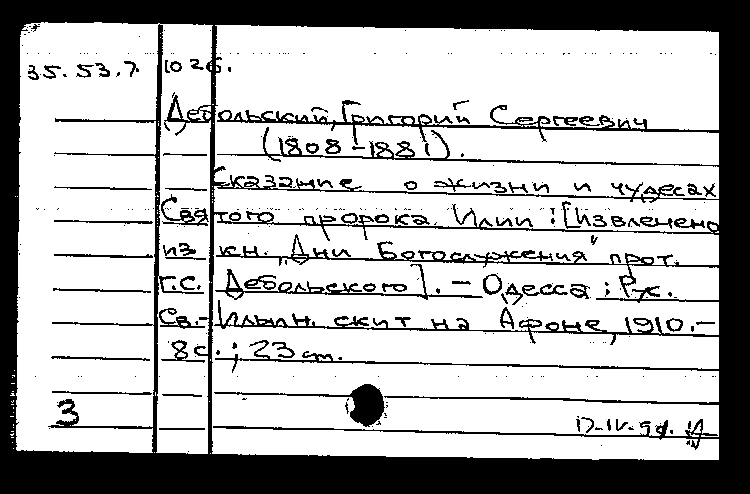 35.53.7. 102б.
Дебольский, Григорий Сергеевич
(1808-1881).
Сказание о жизни и чудесах
Святого пророка Илии : [Извлечено
из кн. „Дни Богослужения" прот.
Г.С. Дебольского]. - Одесса : Рус.
Св.-Ильин. скит на Афоне, 1910.-
8 с. ; 23 см.
3